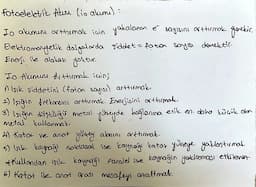 Fotoelektrik Akım (io akımı) :
Io akımını arttırmak için yakalanan e⁻ sayısını arttırmak gerekir.
Elektromanyetik dalgalarda şiddet = foton sayısı demektir.
Enerji ile alakası yoktur.
Io Akımını Arttırmak için;
1) Işık şiddetini (foton sayısı) arttırmak.
2) Işığın frekansını arttırmak. Enerjisini arttırmak.
3) Işığın düştüğü metal yüzeyde bağlanma enerjisi daha küçük olan
metal kullanmak.
4) Katot ve anot yüzey alanını arttırmak.
5) Işık kaynağı noktasal ise kaynağı katot yüzeye yaklaştırmak
*Kullanılan ışık kaynağı paralel ise kaynağın yaklaşması etkilemez.
6) Katot ile anot arası mesafeyi azaltmak.